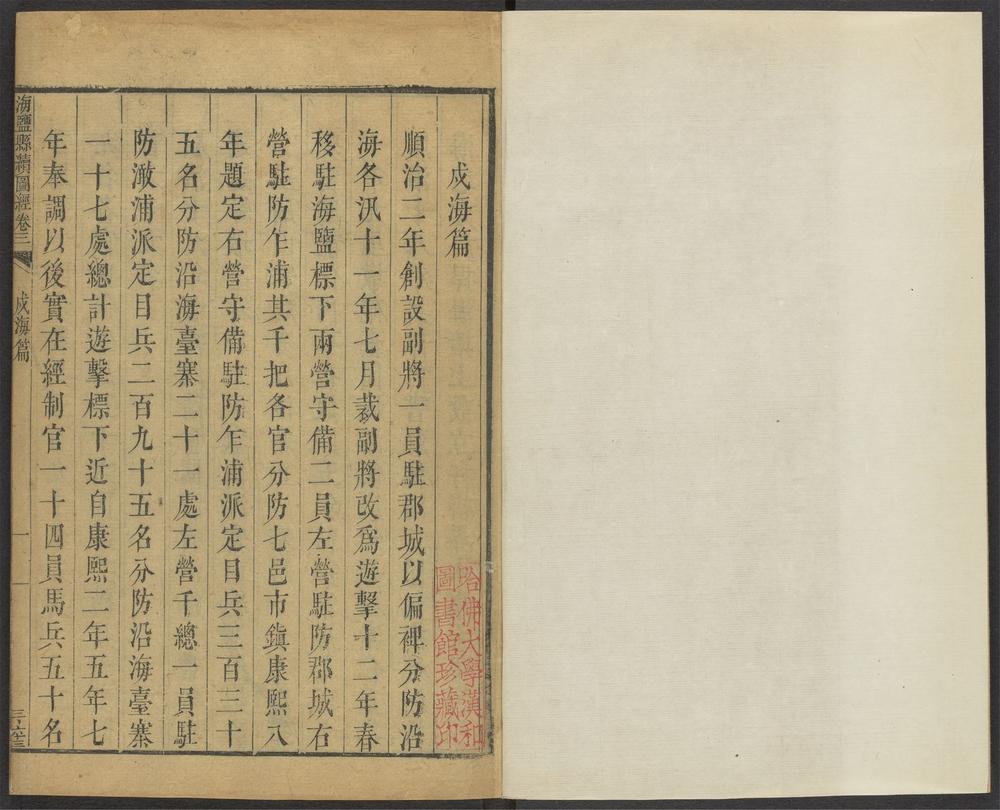 戍海篇
順治二年創設副將一員駐郡城以偏裨分防沿
海各汛十一年七月裁副將改爲遊擊十二年春
移駐海鹽標下兩營守備二員左營駐防郡城右
營駐防乍浦其千把各官分防七邑市鎮康熙八
年題定右營守備駐防乍浦派定目兵三百三十
五名分防沿海臺寨二十一處左營千總一員駐
防澉浦派定目兵二百九十五名分防沿海臺寨
一十七處總計遊擊標下近自康熙二年五年七
年奉調以後實在經制官一十四員馬兵五十名
海鹽縣續圖經卷三
戍海篇
一
哈佛大學漢和
圖書館珍藏印